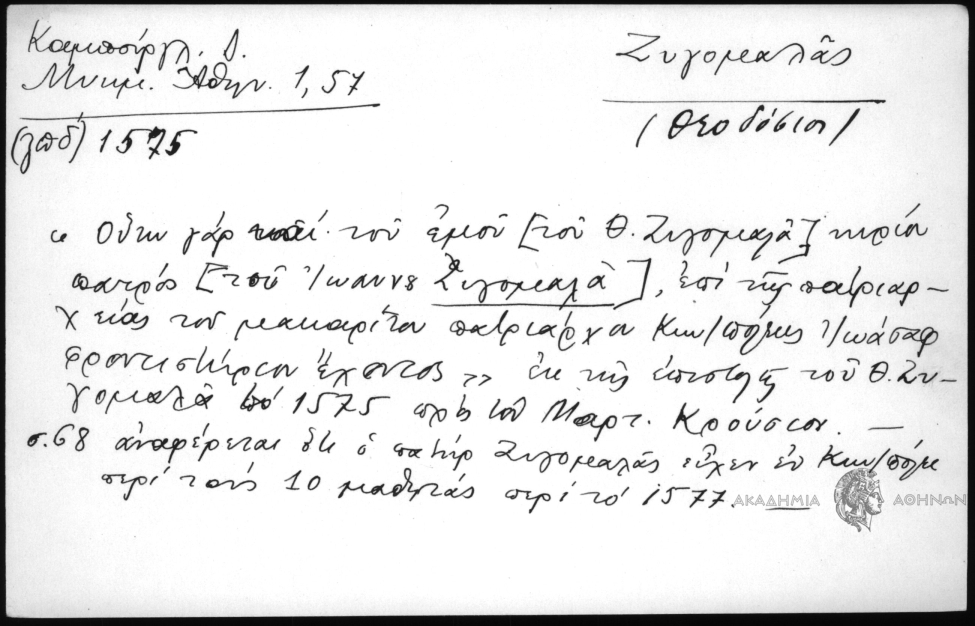 Καμπούρογλ. Δ.
Μνημ. Ἀθην. 1, 57
Ζυγομαλᾶς
1575
(Θεοδόσιος)
" Οὕτω γάρ τοῦ ἐμοῦ [τοῦ Θ. Ζυγομαλᾶ] κυρίου
πατρός [τοῦ Ἰωάννου Ζυγομαλᾶ], ἐπί τῆς πατριαρ-
χείας τοῦ μακαρίτου πατριάρχου Κων/πόλεως Ἰωάσαφ
φροντιστήριον ἔχοντος „ ἐκ τῆς ἐπιστολῆς τοῦ Θ. Ζυ-
γομαλᾶ τοῦ 1575 πρός τόν Μαρτ. Κρούσιον. —
σ. 68 ἀναφέρεται ὅτι ὁ πατήρ Ζυγομαλᾶς εἶχεν ἐν Κων/πόλει
περί τούς 10 μαθητάς περί τό 1577.
ΑΚΑΔΗΜΙΑ ΑΘΗΝΩΝ